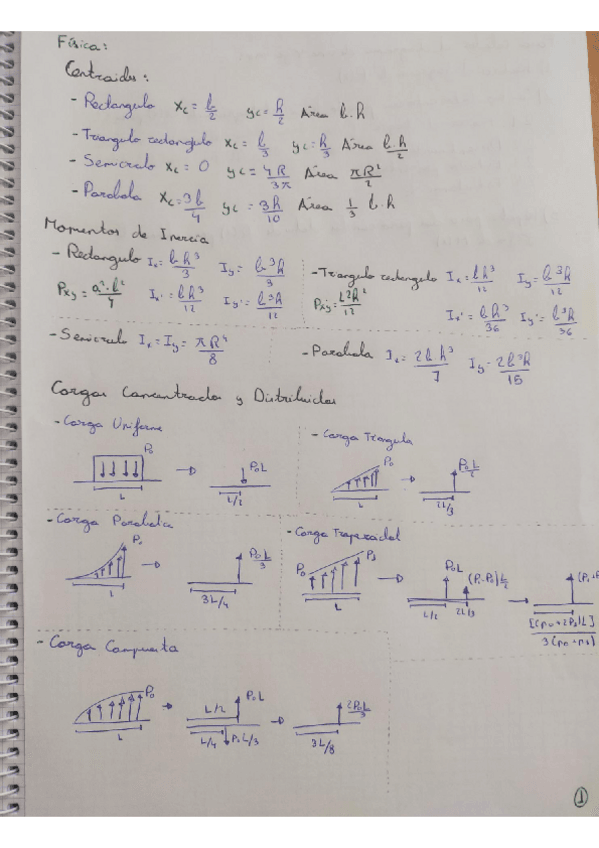 Física:
Centroides:
- Rectangulo xc = b/2 yc = h/2 Área b.h
- Triangulo rectangulo xc = b/3 yc = h/3 Área b.h/2
- Semicirculo xc = 0 yc = 4R/3π Área πR²/2
- Parabola xc = 3b/4 yc = 3h/10 Área 1/3 b.h
Momentos de Inercia
- Rectangulo Ix = bh³/3 Iy = b³h/3
Pxy = a²·b²/4 Ix' = bh³/12 Iy' = b³h/12
- Triangulo rectangulo Ix = bh³/12 Iy = b³h/12
Ix' = bh³/36 Iy' = b³h/36
- Semicirculo Ix = Iy = πR⁴/8
- Parabola Ix = 2bh³/7 Iy = 2b³h/15
Cargas Concentradas y Distribuidas
- Carga Uniforme
P₀
L
P₀L
L/2
- Carga Triangula
P₀
L
P₀L/2
2L/3
- Carga Parabola
P₀
L
P₀L/3
3L/4
- Carga Trapezoidal
P₀
L
P₀L
L/2
2L/3
- Carga Compuesta
P₀
L
L/2
P₀L
L/4
P₀L/3
2P₀L/3
3L/8
1